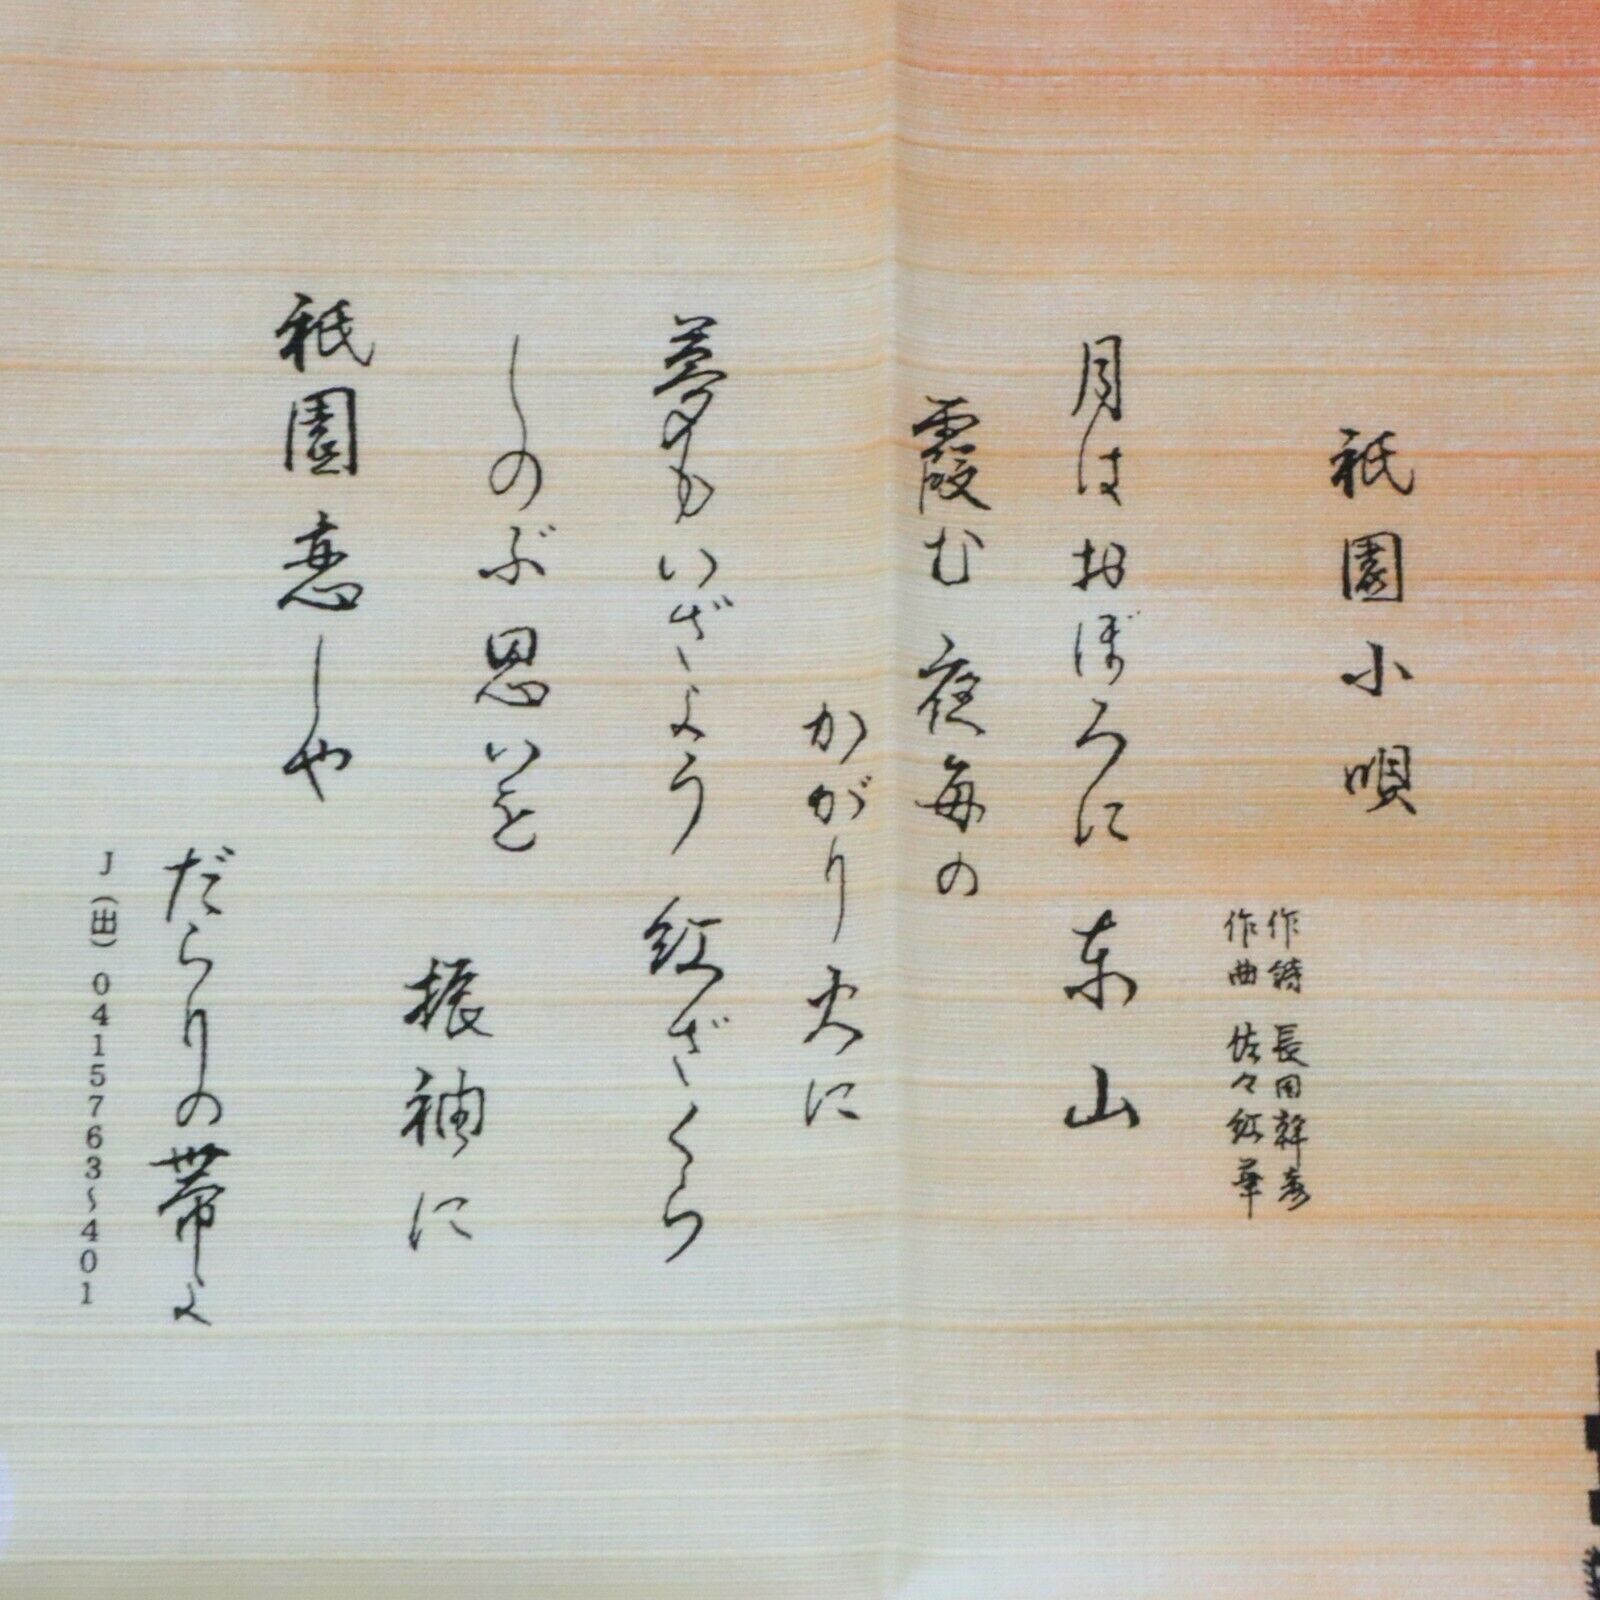 祇園小唄
作詩 長田幹彦
作曲 佐々紅華
月はおぼろに 東山
霞む夜毎の
かがり火に
夢もいざよう 紅ざくら
しのぶ思いを
振袖に
祇園恋しや
だらりの帯よ
J(出)0415763〜401